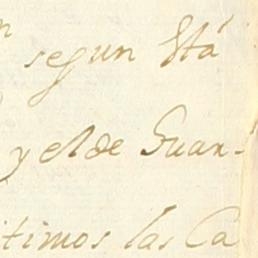 segun Está
y el de Guan-
timos las Ca